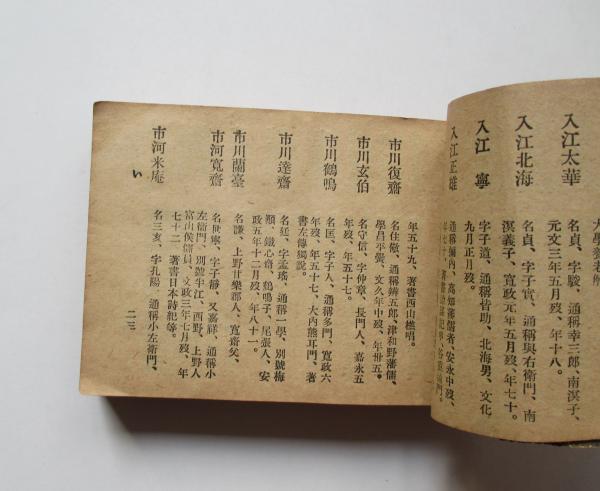 大學養老
入江太華
名貞、字駿、通稱幸三郎、南溟子、
元文三年五月歿、年十八。
入江北海
名貞、字子實、通稱與右衛門、南
溟義子、寬政元年五月歿、年七十。
入江寧
字子道、通稱皆助、北海男、文化
九月正月歿。
入江正雄
通稱彌內、高知藩儒者、安永中歿、
年五十九、著書西山樵唱。
市川復齋
名住徹、通稱辨五郎、津和野藩儒、
學昌平黌、文久年中歿、年卅五。
市川玄伯
名守信、字仲章、長門人、嘉永五
年歿、年五十七。
市川鶴鳴
名匡、字子人、通稱多門、寬政六
年歿、年五十七、大內熊耳門、著
書左傳獨說。
市川達齋
名廷、字孟瑤、通稱一學、別號梅
顚、鐵心齋、鶴鳴子、尾張人、安
政五年十二月歿、年八十一。
市川蘭臺
名謙、上野甘樂郡人、寬齋父、
市河寬齋
名世寧、字子靜、又嘉祥、通稱小
左衛門、別號半江、西野、上野人
富山侯儒員、文政三年七月歿、年
七十二、著書日本詩紀等。
市河米庵
名三亥、字孔陽、通稱小左衛門、
い
二三